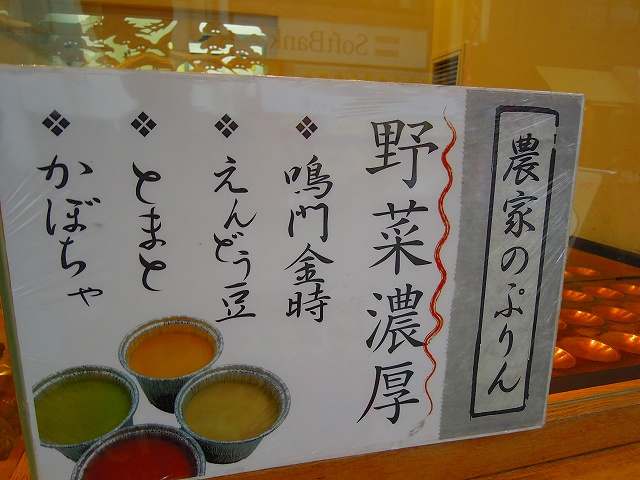 農家のぷりん
野菜濃厚
❖鳴門金時
❖えんどう豆
❖とまと
❖かぼちゃ
SoftBank